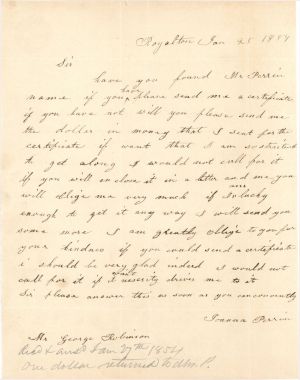 Royalton Jan 25 1854
Sir
have you found Mr Perrin
name if you have please send me a certificate
if you have not will you please send me
the dollar in money that I sent for the
certificate if want that I am so
to get along I would not call for it
if you will inclose it in a letter and me you
will oblige me very much if I am so lucky
enough to get it any way I will send you
some more I am greatly oblige to you for
your kindness if you could send a certificate
i should be very glad indeed I would not
call for it if nessesity drives me to it
Sir please answer this as soon as you conveniently
Joanna Perrin
Mr George Robinson
Recd & ansd Jan 27th 1854
One dollar returned to Mrs. P.